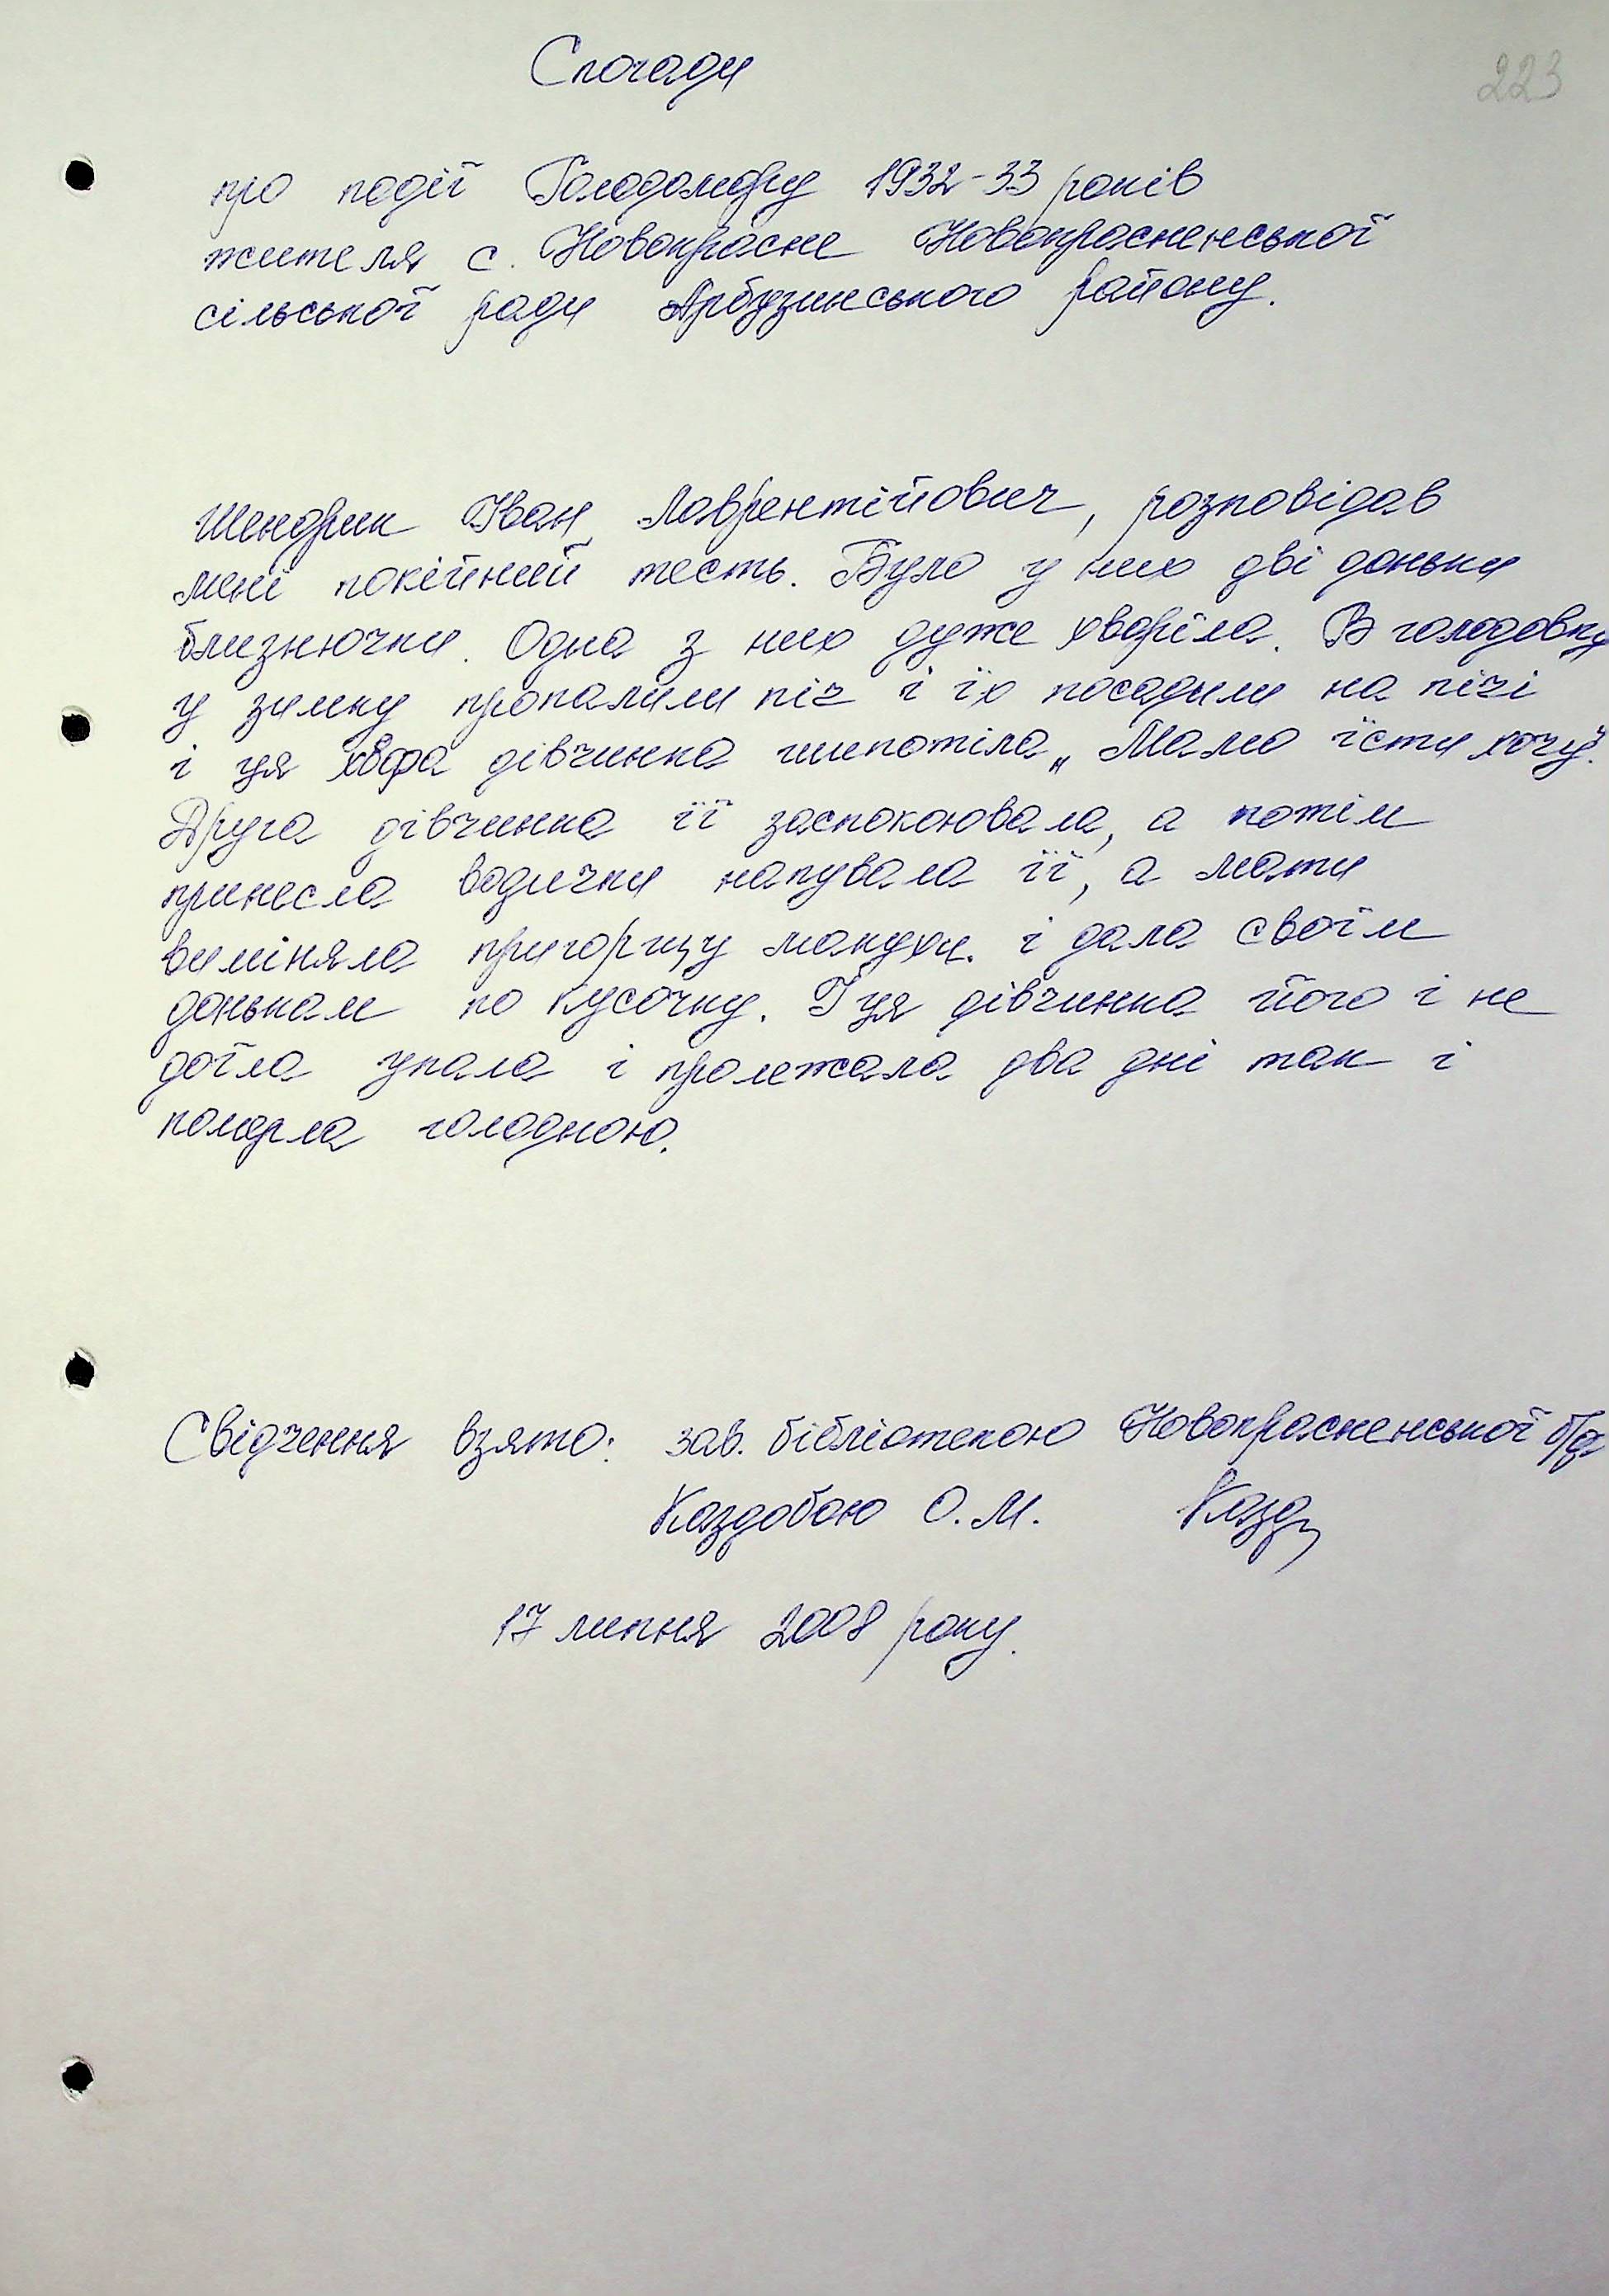 Спогади
223
про події Голодомору 1932-33 років
жителя с. Новокрасне Новокрасненської
сільської ради Арбузинського району.
Шендрик Іван Лаврентійович, розповідав
мені покійний тесть. Було у них дві доньки
близнючки. Одна з них дуже хворіла. В голодовку
у зимку пропалили піч і їх посадили на пічі
і ця хвора дівчинка шепотіла „Мамо їсти хочу".
Друга дівчинка її заспокоювала, а потім
принесла водички напувала її, а мати
виміняла пригорщу макухи. і дала своїм
донькам по кусочку. І ця дівчинка його і не
доїла упала і пролежала два дні так і
померла голодною.
Свідчення взято: зав. бібліотекою Новокрасненської б/ф
Каздобою О.М.
17 липня 2008 року.